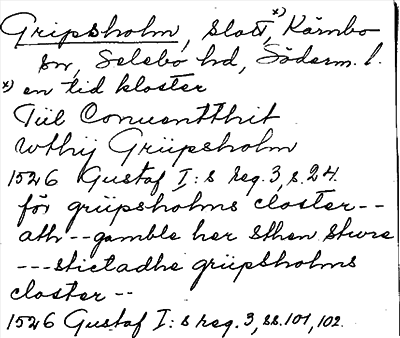 Gripsholm, slott, x) Kärnbo
sn, Selebo hd, Söderm. l.
x) en tid kloster
Tiil Conuentthit
wthij Griipsholm
1526 Gustaf I:s reg. 3, s. 24.
för griipsholms closter--
ath--gamble her Sthen Sture
---stictadhe griipsholms
closter--
1526 Gustaf I:s reg. 3, ss. 101, 102.